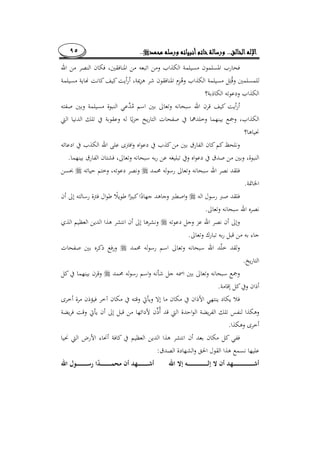 الإله الخالق.. ورسالة خاتم أنبيائه ورسله محمد ﷺ.. ٩٥
فحارب المسلمون مسيلمة الكذاب ومن اتبعه من المنافقين، فكان النصر من الله
للمسلمين وقُتِل مسيلمة الكذاب وهُزم المنافقون شر هزيمة، أرأيت كيف كانت نهاية مسيلمة
الكذاب ودعوته الكاذبة؟
أرأيت كيف قرن الله سبحانه وتعالى بين اسم مُدَّعي النبوة مسيلمة وبين صفته
الكذاب، وجمع بينهما وخلدهما في صفحات التاريخ خزيًا له وعقوبة في تلك الدنيا التي
نحياها؟
ونلحظ كم كان الفارق بين من كذب في دعوته وافترى على الله الكذب في ادعائه
النبوة، وبين من صدق في دعواه وفي تبليغه عن ربه سبحانه وتعالى، فشتان الفارق بينهما.
فلقد نصر الله سبحانه وتعالى رسوله محمد ﷺ ونصر دعوته، وختم حياته ﷺ بحسن
الخاتمة.
فلقد صبر رسول الله ﷺ واصطبر وجاهد جهادًا كبيرًا طويلًا طوال فترة رسالته إلى أن
نصره الله سبحانه وتعالى.
وإلى أن نصر الله عز وجل دعوته ﷺ ونشرها إلى أن انتشر هذا الدين العظيم الذي
جاء به من قبل ربه تبارك وتعالى.
ولقد خلّد الله سبحانه وتعالى اسم رسوله محمد ﷺ ورفع ذكره بين صفحات
التاريخ.
وجمع سبحانه وتعالى بين اسمه جل شأنه واسم رسوله محمد ﷺ وقرن بينهما في كل
أذان وفي كل إقامة.
فلا يكاد ينتهي الأذان في مكان ما إلا ويأتي وقته في مكان آخر فيؤذن مرة أخرى
وهكذا لنفس تلك الفريضة الواحدة التي قد أُذِّن لأدائها من قبل إلى أن يأتي وقت فريضة
أخرى وهكذا.
ففي كل مكان بعد أن انتشر هذا الدين العظيم في كافة أنحاء الأرض التي نحيا
عليها نسمع هذا القول الحق والشهادة الصدق:
أشـــــهد أن لا إلـــــه إلا الله أشـــــهد أن محمـــــدًا رســـــول الله